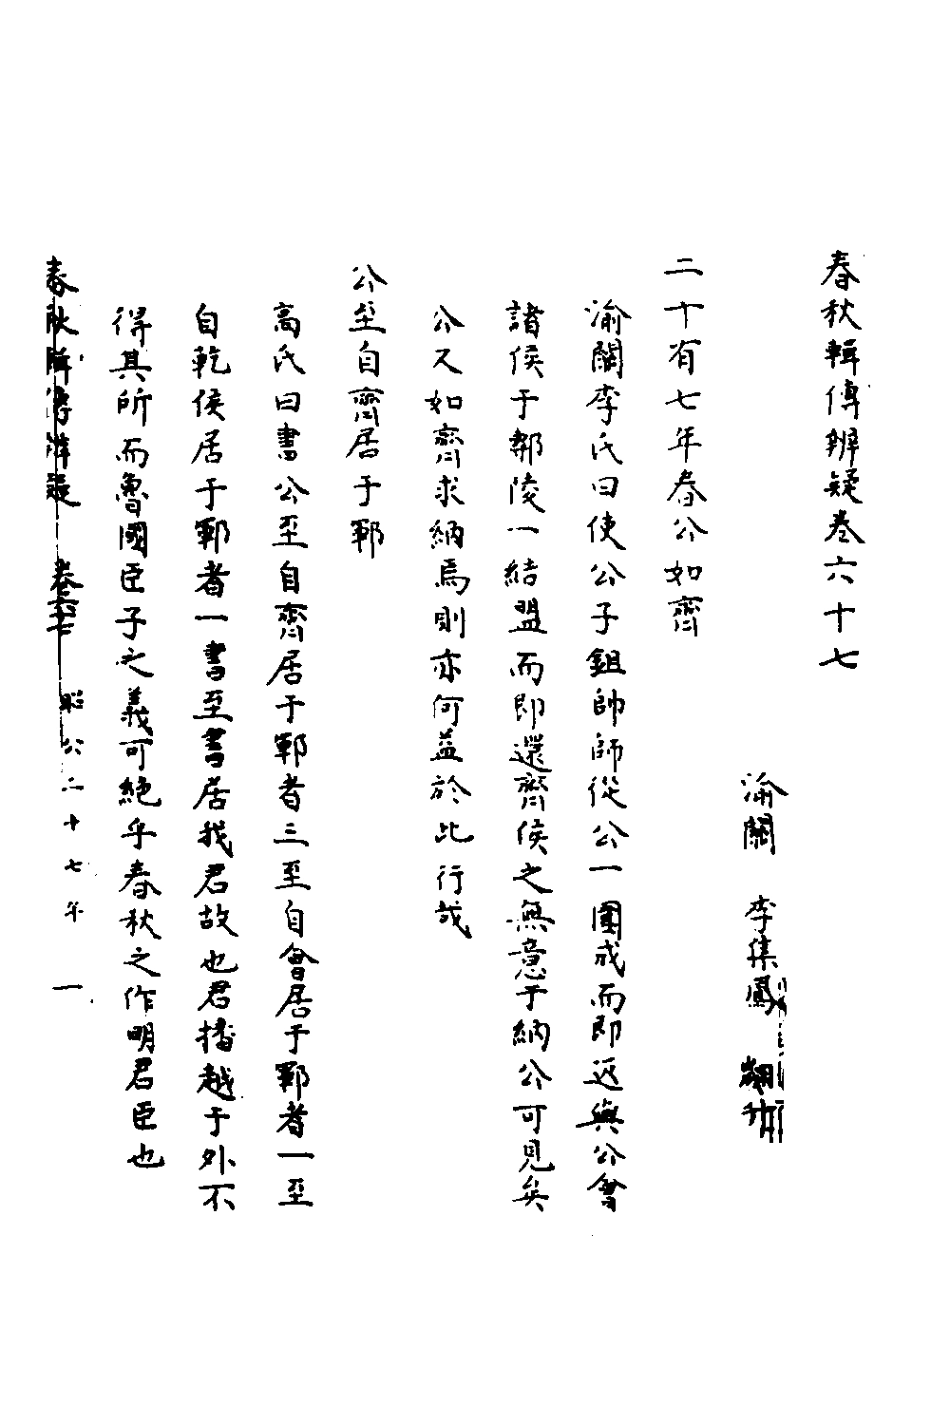 春秋輯傳辨疑卷六十七
渝關 李集鳳 翽升
二十有七年春公如齊
渝關李氏曰使公子鉏帥師從公一圍成而即返與公會
諸侯于鄟陵一結盟而即還齊侯之無意于納公可見矣
公又如齊求納焉則亦何益於此行哉
公至自齊居于鄆
高氏曰書公至自齊居于鄆者三至自會居于鄆者一至
自乾侯居于鄆者一書至書居我君故也君播越于外不
得其所而魯國臣子之義可絕乎春秋之作明君臣也
春秋輯傳辨疑 卷六十七 昭公二十七年 一